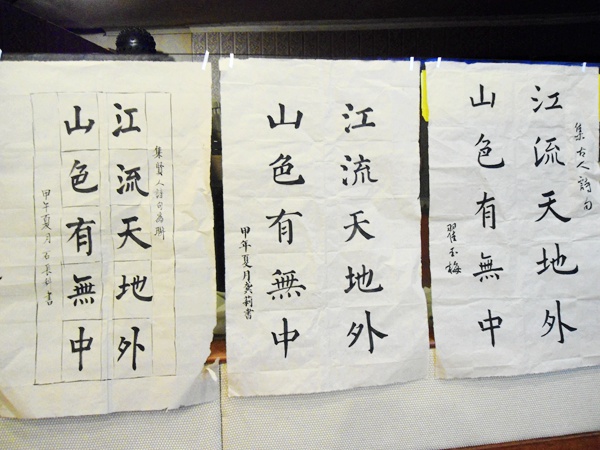 集賢人詩句為聯
江流天地外
山色有無中
甲午夏月書
江流天地外
山色有無中
甲年夏月莉書
集古人詩句
江流天地外
山色有無中
翟玉梅